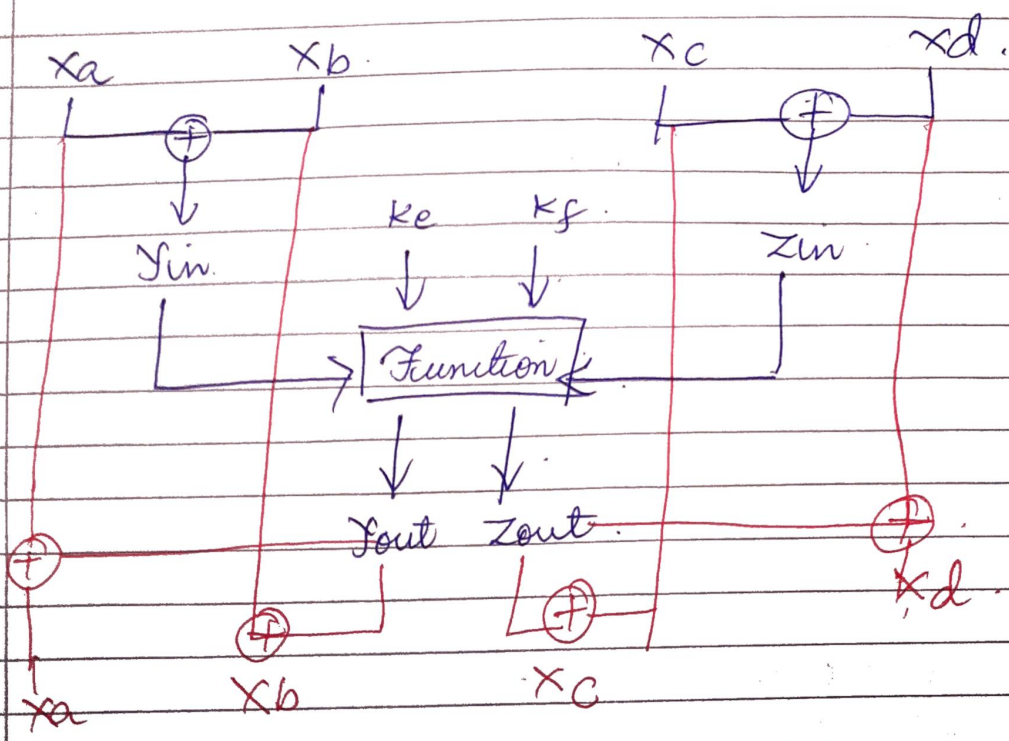 Xa Xb. Xc Xd.
Ke Kf.
Yin. Zin
Function
Yout Zout.
Xd.
Xa Xb Xc